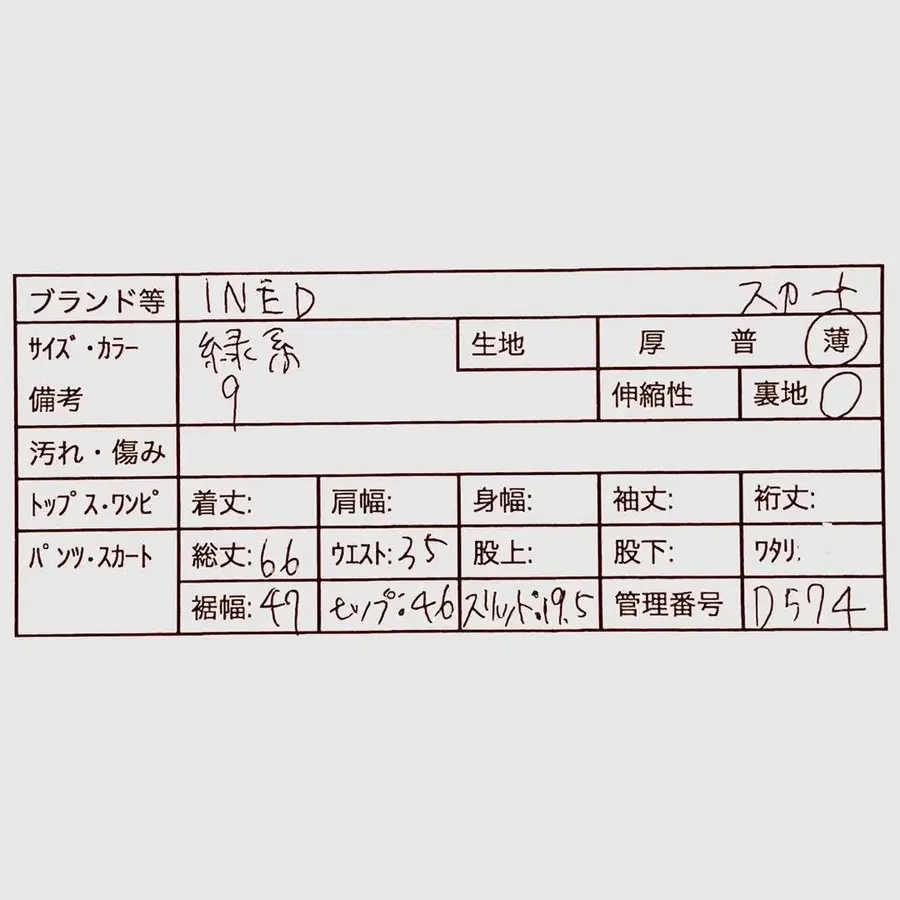 ブランド等 INED スカート
サイズ・カラー 緑系 生地 厚 普 薄
備考 9 伸縮性 裏地 ○
汚れ・傷み
トップス・ワンピ 着丈: 肩幅: 身幅: 袖丈: 裄丈:
パンツ・スカート 総丈:66 ウエスト:35 股上: 股下: ワタリ:
裾幅:47 ヒップ:46 スリット:19.5 管理番号 D574